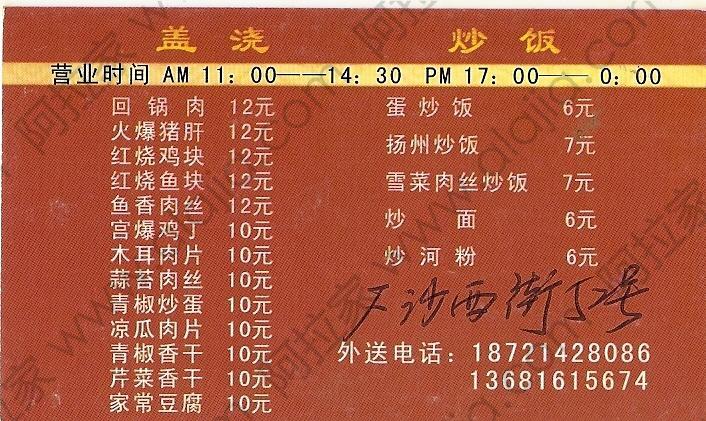 盖浇 炒饭
营业时间 AM 11:00——14:30 PM 17:00——0:00
回锅肉 12元
火爆猪肝 12元
红烧鸡块 12元
红烧鱼块 12元
鱼香肉丝 12元
宫爆鸡丁 10元
木耳肉片 10元
蒜苔肉丝 10元
青椒炒蛋 10元
凉瓜肉片 10元
青椒香干 10元
芹菜香干 10元
家常豆腐 10元
蛋炒饭 6元
扬州炒饭 7元
雪菜肉丝炒饭 7元
炒面 6元
炒河粉 6元
沙西街52号
外送电话:18721428086
13681615674
阿拉家 www.alajia.com